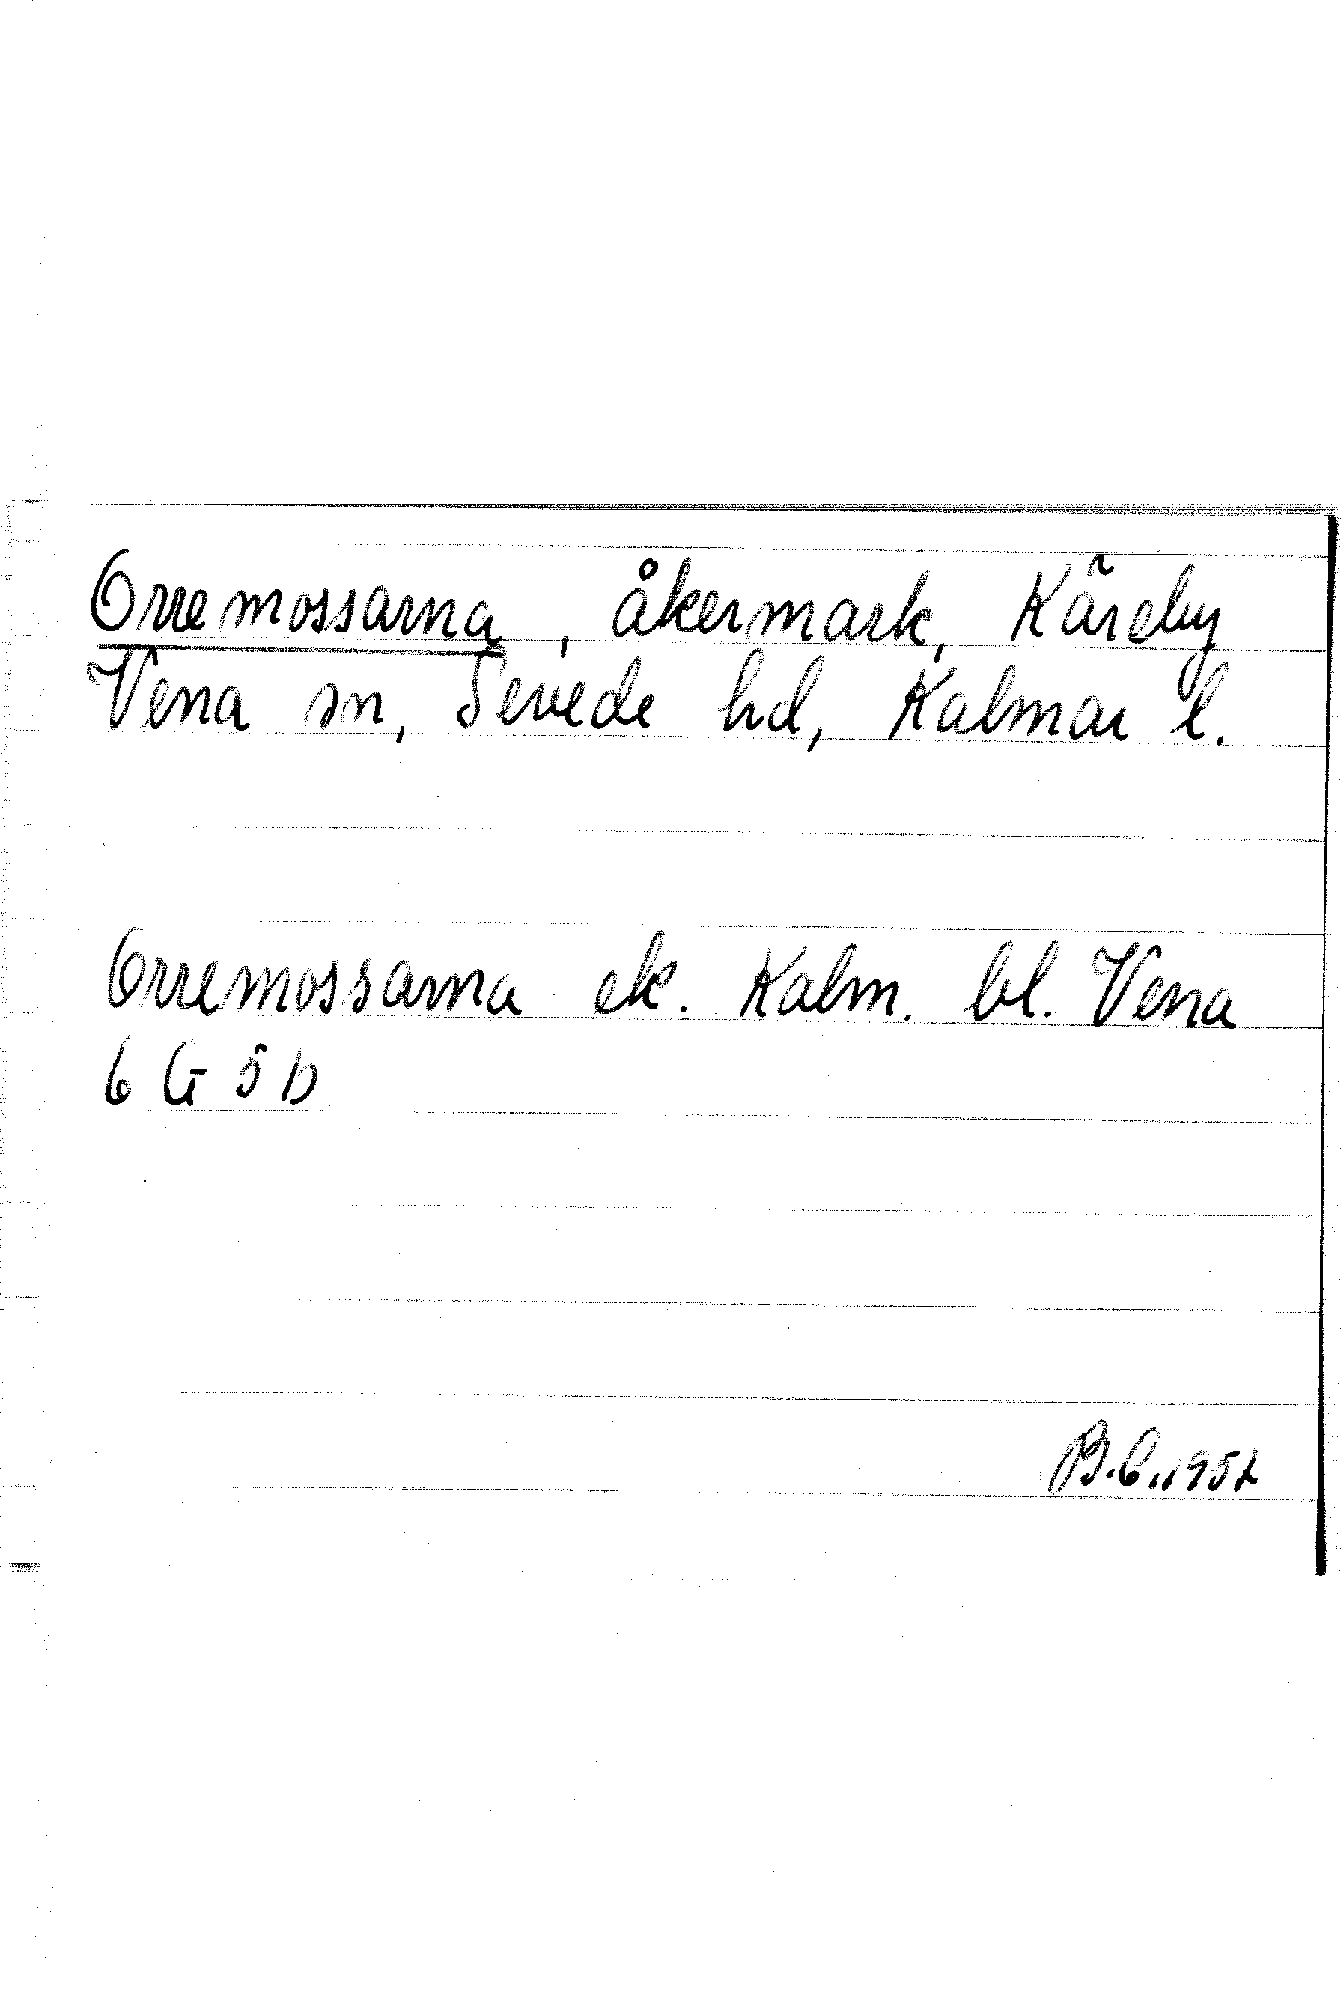 Orremossarna, åkermark, Käreby
Vena sn, Sevede hd, Kalmar l.
Orremossarna ek. Kalm. bl. Vena
6 G 5 b
B.C. 1952